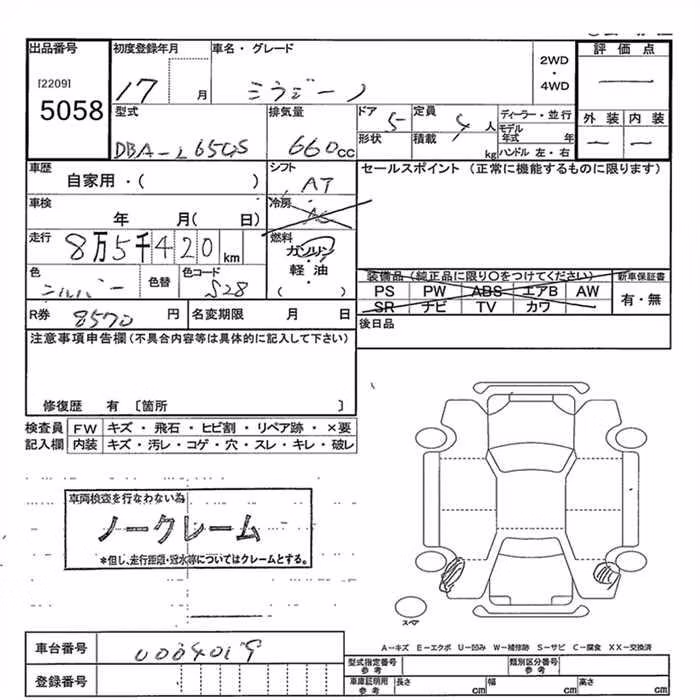 出品番号 初度登録年月 車名・グレード 評価点
[2209] 17 月 ミラジーノ 2WD・4WD
5058
型式 排気量 ドア 定員 ディーラー・並行 外装 内装
DBA-L650S 660cc 5 4人 モデル年式 年
形状 積載 kg ハンドル 左・右
車歴 シフト セールスポイント (正常に機能するものに限ります)
自家用・( ) AT
車検 冷房
年 月( 日) AC
走行 燃料
8万5千420km ガソリン・軽油・( )
色 色替 色コード 装備品(純正品に限り○をつけてください) 新車保証書
シルバー S28 PS PW ABS エアB AW 有・無
SR ナビ TV カワ
R券 8570円 名変期限 月 日 後日品
注意事項申告欄(不具合内容等は具体的に記入して下さい)
修復歴 有 〔箇所 〕
検査員 FW キズ・飛石・ヒビ割・リペア跡・×要
記入欄 内装 キズ・汚レ・コゲ・穴・スレ・キレ・破レ
車両検査を行なわない為
ノークレーム
*但し、走行距離・冠水等についてはクレームとする。
スペア
A-キズ E-エクボ U-凹み W-補修跡 S-サビ C-腐食 XX-交換済
車台番号 0004019
型式指定番号 参考 類別区分番号 参考
登録番号 車庫証明用 参考 長さ cm 幅 cm 高さ cm